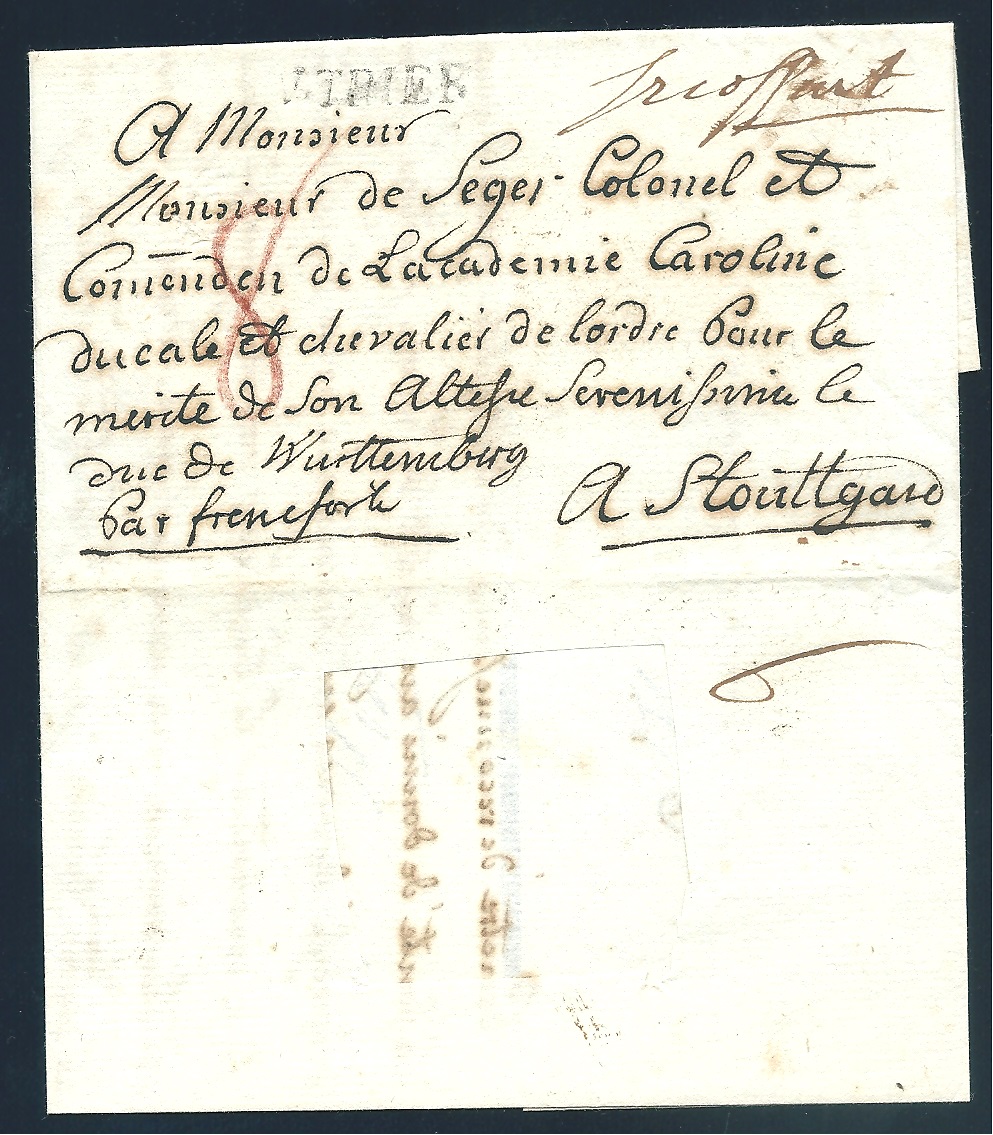 TRIER
A Monsieur
Monsieur de Seger Colonel et
Com̄enden de Lacademie Caroline
ducale et chevalier de lordre Pour le
merite de Son Altesse Serenissime le
duc de Wurttemberg
Par francforte
A Stouttgard
8
6